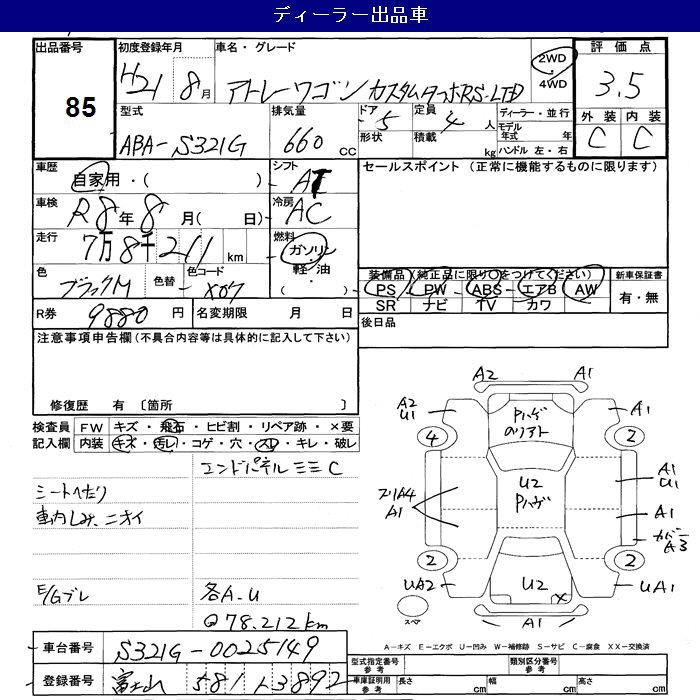 ディーラー出品車
出品番号 85
初度登録年月 H21 8月
車名・グレード アトレーワゴン カスタムターボRS-LTD
2WD 4WD
評価点 3.5
外装 C 内装 C
型式 ABA-S321G
排気量 660 cc
ドア 5 形状
定員 4人 積載 kg
ディーラー・並行
モデル年式 年
ハンドル 左・右
車歴 自家用・( )
シフト AT
セールスポイント (正常に機能するものに限ります)
車検 R8年 8月( 日)
冷房 AC
走行 7万8千211 km
燃料 ガソリン 軽油 ( )
色 ブラックM 色替 色コード X07
装備品 (純正品に限り○をつけてください)
新車保証書 有・無
PS PW ABS エアB AW
SR ナビ TV カワ
R券 9880 円 名変期限 月 日
後日品
注意事項申告欄(不具合内容等は具体的に記入して下さい)
修復歴 有 〔箇所 〕
検査員記入欄 FW キズ・飛石・ヒビ割・リペア跡・×要
内装 キズ・汚レ・コゲ・穴・スレ・キレ・破レ
エンドパネルミミC
シートへたり
車内しみ、ニオイ
E/Gブレ
各A.U
@78.212km
A2 U1
A1
A2
A1
A1
Pハゲ
4
2
U2
Pハゲ
A1 U1
A1
カバーA3
A1
2
2
UA2
U2
UA1
A1
スペア
A-キズ E-エクボ U-凹み W-補修跡 S-サビ C-腐食 XX-交換済
車台番号 S321G-0025149
登録番号 富士山 581 3892
型式指定番号 参考
類別区分番号 参考
車庫証明用 参考 長さ cm 幅 cm 高さ cm